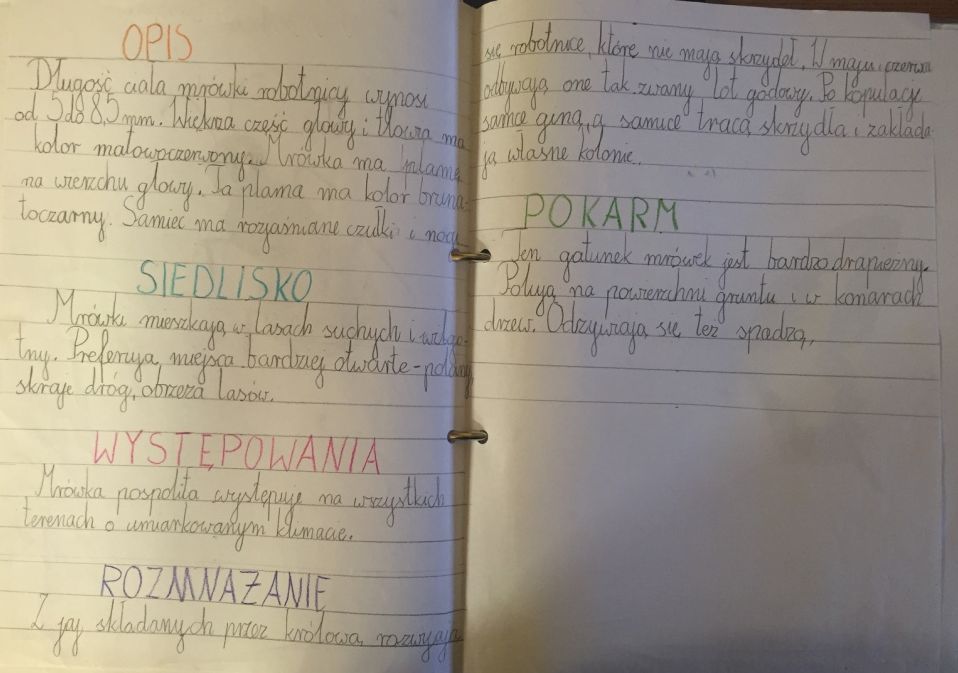 OPIS
Długość ciała mrówki robotnicy wynosi
od 5 do 8,5 mm. Większa część głowy i tłowia ma
kolor matowoczerwony. Mrówka ma plamę
na wierzchu głowy. Ta plama ma kolor bruna-
toczarny. Samiec ma rozjaśniane czułki i nogi
SIEDLISKO
Mrówki mieszkają w lasach suchych i wilgo-
tny. Preferują miejsca bardziej otwarte - polany,
skraje dróg, obrzeża lasów.
WYSTĘPOWANIA
Mrówka pospolita występuje na wszystkich
terenach o umiarkowanym klimacie.
ROZMNAŻANIE
Z jaj składanych przez królową, rozwijają
się robotnice, które nie mają skrzydeł. W maju i czerwcu
odbywają one tak zwany lot godowy. Po kopulacji
samce giną, a samice tracą skrzydła i zakłada-
ją własne kolonie.
POKARM
Ten gatunek mrówek jest bardzo drapieżny.
Polują na powierzchni gruntu i w konarach
drzew. Odżywiają się też spadzią.